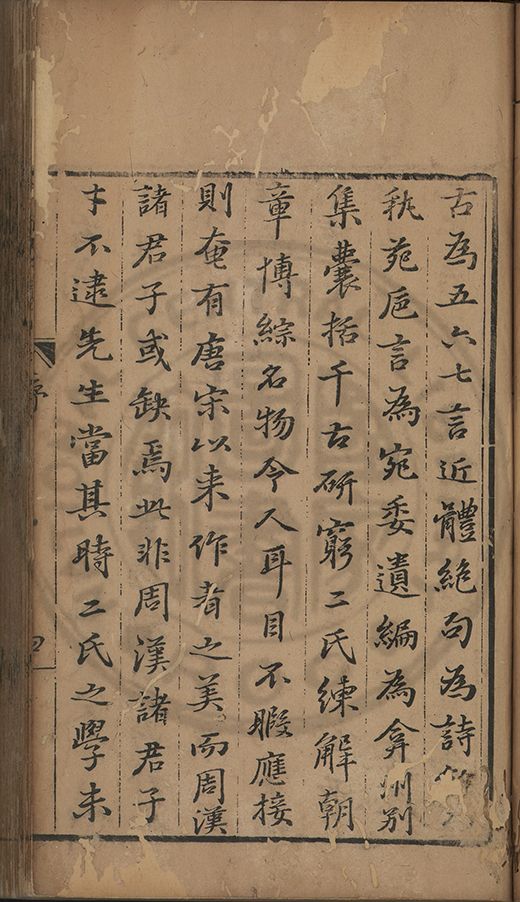 古為五六七言近體絶句為詩
秇苑巵言為宛委遺編為弇州别
集囊括千古研窮二氏練解朝
章博綜名物令人耳目不暇應接
則奄有唐宋以来作者之美而周漢
諸君子或缺焉此非周漢諸君子
才不逮先生當其時二氏之學未
序